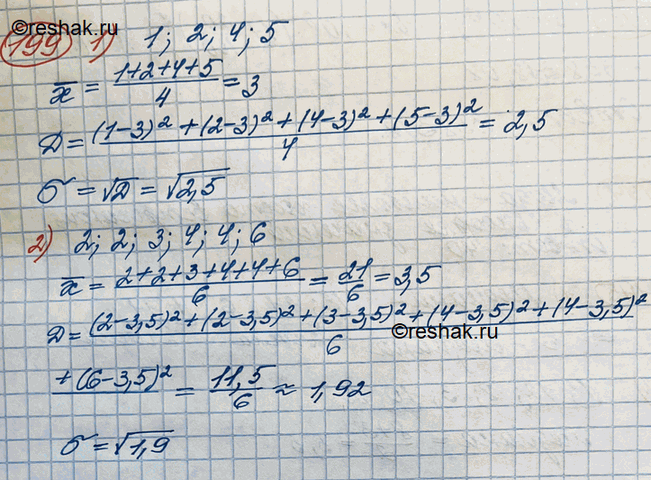 ©reshak.ru
199 1) 1; 2; 4; 5
x̄ = (1+2+4+5)/4 = 3
D = ((1-3)² + (2-3)² + (4-3)² + (5-3)²)/4 = 2,5
σ = √D = √2,5
2) 2; 2; 3; 4; 4; 6
x̄ = (2+2+3+4+4+6)/6 = 21/6 = 3,5
D = ((2-3,5)² + (2-3,5)² + (3-3,5)² + (4-3,5)² + (4-3,5)²
©reshak.ru
+ (6-3,5)²)/6 = 11,5/6 ≈ 1,92
σ = √1,9